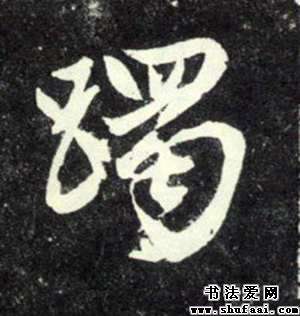 躅
书法爱网
www.shufaai.com